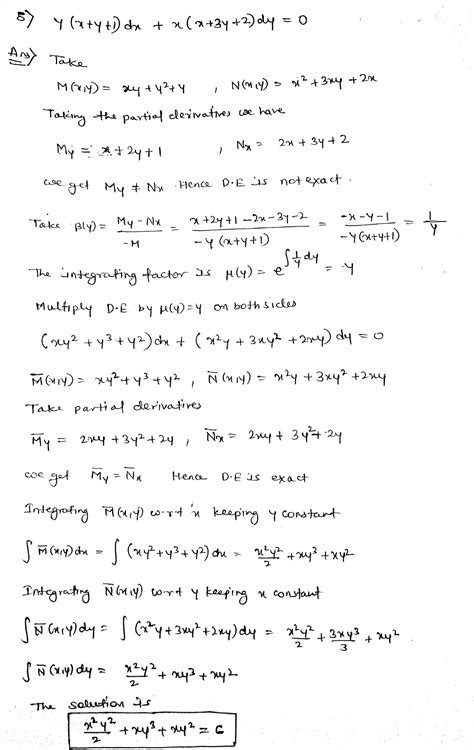 5) y(x+y+1)dx + x(x+3y+2)dy = 0
Ans) Take
M(x,y) = xy+y²+y , N(x,y) = x²+3xy+2x
Taking the partial derivatives we have
My = x+2y+1 , Nx = 2x+3y+2
we get My ≠ Nx Hence D.E is not exact.
Take β(y) = (My-Nx)/(-M) = (x+2y+1-2x-3y-2)/(-y(x+y+1)) = (-x-y-1)/(-y(x+y+1)) = 1/y
The integrating factor is μ(y) = e^(∫(1/y)dy) = y
Multiply D.E by μ(y)=y on both sides
(xy²+y³+y²)dx + (x²y+3xy²+2xy)dy = 0
M̄(x,y) = xy²+y³+y² , N̄(x,y) = x²y+3xy²+2xy
Take partial derivatives
M̄y = 2xy+3y²+2y , N̄x = 2xy+3y²+2y
we get M̄y = N̄x Hence D.E is exact
Integrating M̄(x,y) w.r.t x keeping y constant
∫M̄(x,y)dx = ∫(xy²+y³+y²)dx = x²y²/2 + xy³ + xy²
Integrating N̄(x,y) w.r.t y keeping x constant
∫N̄(x,y)dy = ∫(x²y+3xy²+2xy)dy = x²y²/2 + 3xy³/3 + xy².
∫N̄(x,y)dy = x²y²/2 + xy³ + xy²
The solution is
x²y²/2 + xy³ + xy² = c